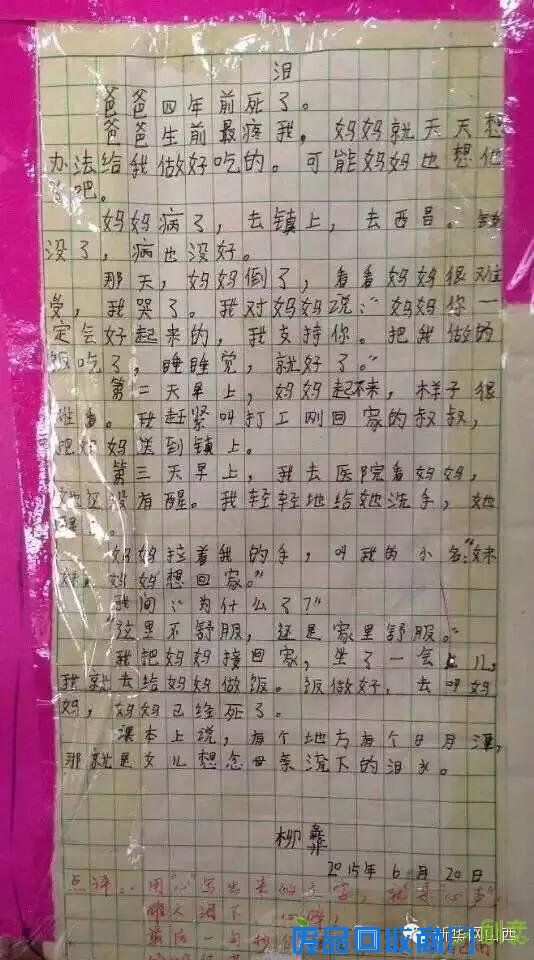 泪
爸爸四年前死了。
爸爸生前最疼我，妈妈就天天想
办法给我做好吃的。可能妈妈也想他
了吧。
妈妈病了，去镇上，去西昌。钱
没了，病也没好。
那天，妈妈倒了，看看妈妈很难
受，我哭了。我对妈妈说：“妈妈你一
定会好起来的，我支持你。把我做的
饭吃了，睡睡觉，就好了。”
第二天早上，妈妈起不来，样子很
难看。我赶紧叫打工刚回家的叔叔，
把妈妈送到镇上。
第三天早上，我去医院看妈妈，
她还没有醒。我轻轻地给她洗手，她
醒了。
妈妈拉着我的手，叫我的小名：“妹
妹，妈妈想回家。”
我问：“为什么了？”
“这里不舒服，还是家里舒服。”
我把妈妈接回家，坐了一会儿，
我就去给妈妈做饭。饭做好，去叫妈
妈，妈妈已经死了。
课本上说，有个地方有个日月潭，
那就是女儿想念母亲流下的泪水。
柳彝
2015年6月20日
点评：用“心”写出来的文字，就是“心声”，
催人泪下
最后一句
新华网江西
废品回收商网
创卖